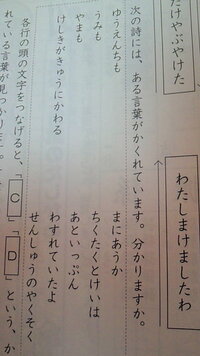 たけやぶやけた
わたしまけましたわ
次の詩には、ある言葉がかくれています。分かりますか。
ゆうえんちも
うみも
やまも
けしきがきゅうにかわる
まにあうか
ちくたくとけいは
あといっぽん
わすれていたよ
せんしゅうのやくそく
各行の頭の文字をつなげると、「C」「D」という、か
れている言葉が見つかり